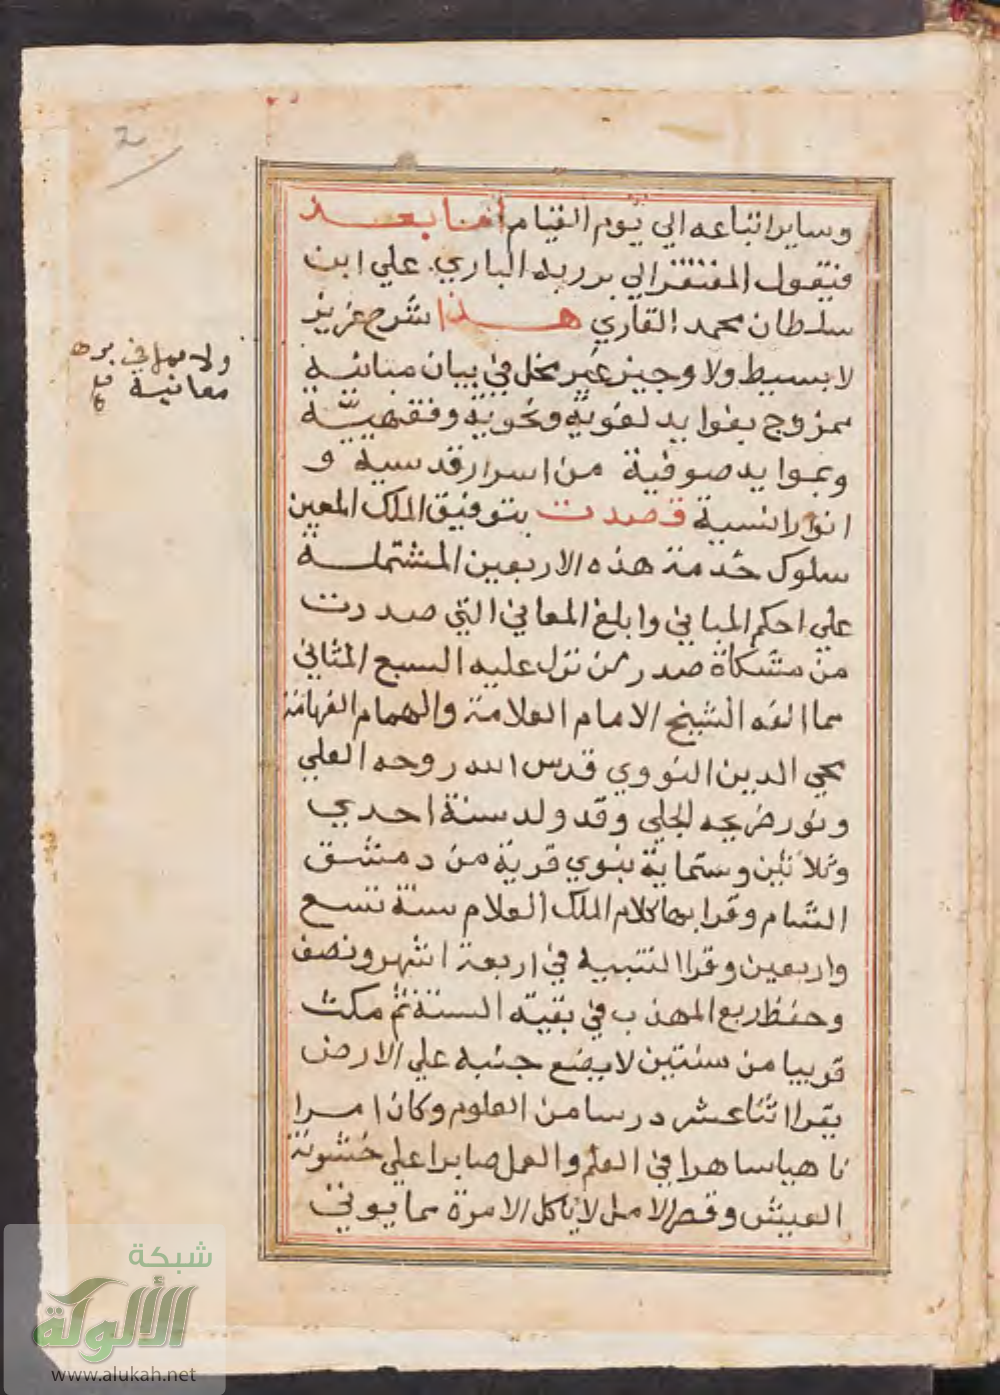 2
وساير اتباعه الي يوم القيام اما بعد
فيقول المفتقر الي بر ربه الباري علي ابن
سلطان محمد القاري هذا شرح عزيز
لا بسيط ولا وجيز غير مخل في بيان مبانيه
ولا ممل في
معانيه
ممزوج بفوايد لغوية ونحوية وفقهية
وبموايد صوفية من اسرار قدسية و
انوار انسية قصدت بتوفيق الملك المعين
سلوك خدمة هذه الاربعين المشتملة
علي احكم المباني وابلغ المعاني التي صدرت
من مشكاة صدر من نزل عليه السبع المثاني
مما الفه الشيخ الامام العلامة والهمام الفهامة
محي الدين النووي قدس الله روحه العلي
ونور ضريحه الجلي وقد ولد سنة احدي
وثلاثين وستماية بنوي قرية من دمشق
الشام وقرا بها كلام الملك العلام سنة تسع
واربعين وقرا التنبيه في اربعة اشهر ونصف
وحفظ ربع المهذب في بقية السنة ثم مكث
قريبا من سنتين لا يضع جنبه علي الارض
يقرا اثنا عشر درسا من العلوم وكان امرا
ناهيا ساهرا في العلم والعمل صابرا علي خشونة
العيش وقصر الامل لا ياكل الا مرة مما يوتي
شبكة
الألوكة
www.alukah.net